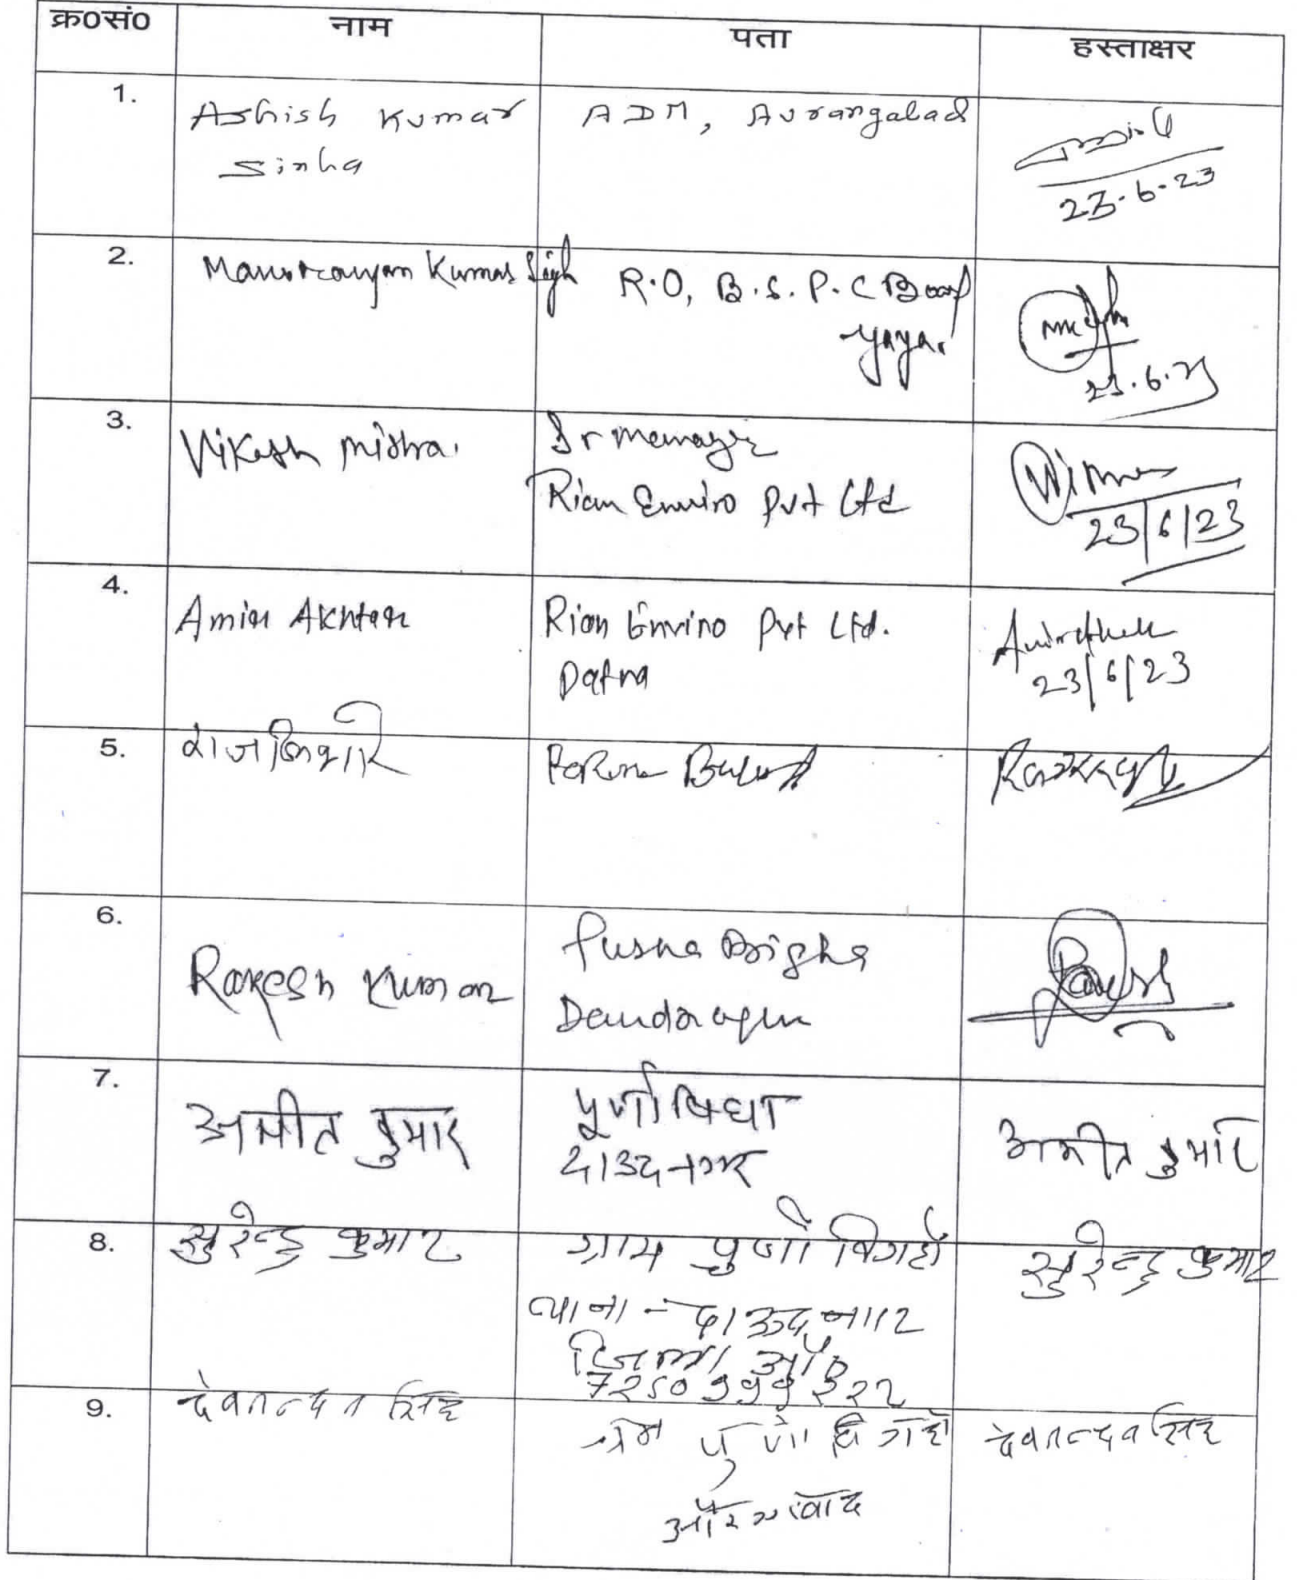 क्र०सं० नाम पता हस्ताक्षर
1. Ashish Kumar ADM, Aurangabad
Sinha
23.6.23
2. Manoranjan Kumar Singh R.O, B.S.P.C Board
Gaya.
23.6.23
3. Vikash Mishra. Sr Manager
Rian Enviro Pvt Ltd
23/6/23
4. Amir Akhtar Rian Enviro Pvt Ltd.
Patna
23/6/23
5.
6. Rakesh Kumar Purna Bigha
Daudnagar
7. अमीत कुमार पूर्णा बिघा अमीत कुमार
दाउदनगर
8. सुरेन्द्र कुमार ग्राम पुर्णा विगहा सुरेन्द्र कुमार
थाना - दाऊदनगर
जिला
9. देवनन्दन सिंह देवनन्दन सिंह
ग्राम पुर्णा बिगहा
औरंगाबाद